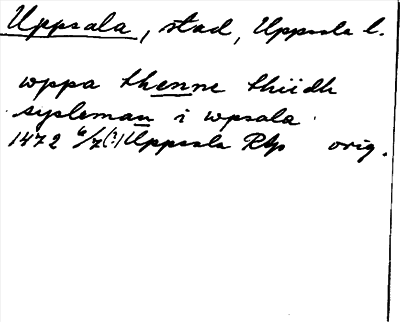 Uppsala, stad, Uppsala l.
wppa thenne thiidh
sysleman i wpsala
1472 6/7 (?) Uppsala Rkp orig.